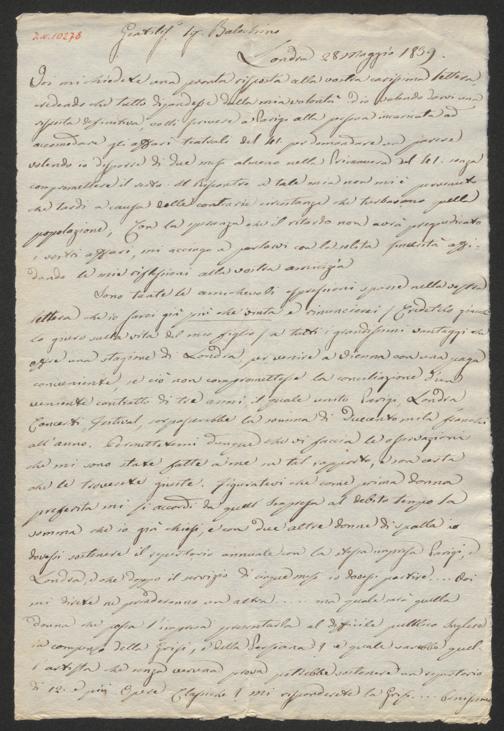 I.N. 10276
Gentilis.º Sg. Balochino
Londra 28 Maggio 1839.
Voi mi chiedete una pronta risposta alla vostra carissima lettera
credendo che tutto dipendesse dalla mia volontà. Io volendo darvi una
risposta definitiva, volli scrivere a Parigi alla persona incaricata ad
accomodare gli affari teatrali del 41. per domandare un parere
volendo io disporre di due mesi almeno nella Primavera del 41. senza
compromettere il resto. Il riscontro a tale mia non mi è pervenuto
che tardi a causa delle contrarie circostanze che turbavano quella
popolazione. Con la speranza che il ritardo non avrà pregiudicato
i vostri affari, mi accingo a parlarvi con la solita sincerità affi-
dando le mie riflessioni alla vostra amicizia
Sono tante le amichevoli espressioni sparse nella vostra
lettera che io sarei già più che vinta e rinuncierei
lo giuro sulla vita del mio figlio / a tutti i grandissimi vantaggi che
offre una stagione di Londra, per venire a Vienna con una paga
conveniente, se ciò non compromettesse la conciliazione d'un
veniente contratto di tre anni, il quale unito Parigi, Londra
Concerti, Festival, sorpasserebbe la somma di Duecento mila franchi
all'anno. Permettetemi dunque che vi faccia le osservazioni
che mi sono state fatte a me in tal rapporto, e son certa
che le troverete giuste. Figuratevi che come prima donna
preferita mi si accordi da quell'Impresa al debito tempo la
somma che io già chiesi, e con due altre donne di spalla io
dovessi sostenere il repertorio annuale con la stessa impresa Parigi, e
Londra, e che doppo il servizio di cinque mesi io dovessi partire.... Voi
mi direte ne prenderanno un'altra ..... ma quale sarà quella
donna che possa l'impresa presentarla al difficile pubblico Inglese
in compenso della Grisi, e della Persiana? e quale sarebbe quel-
l'artista che senza veruna prova potrebbe sostenere un repertorio
di 12. e più Opere Classiche? mi risponderete la Grisi...